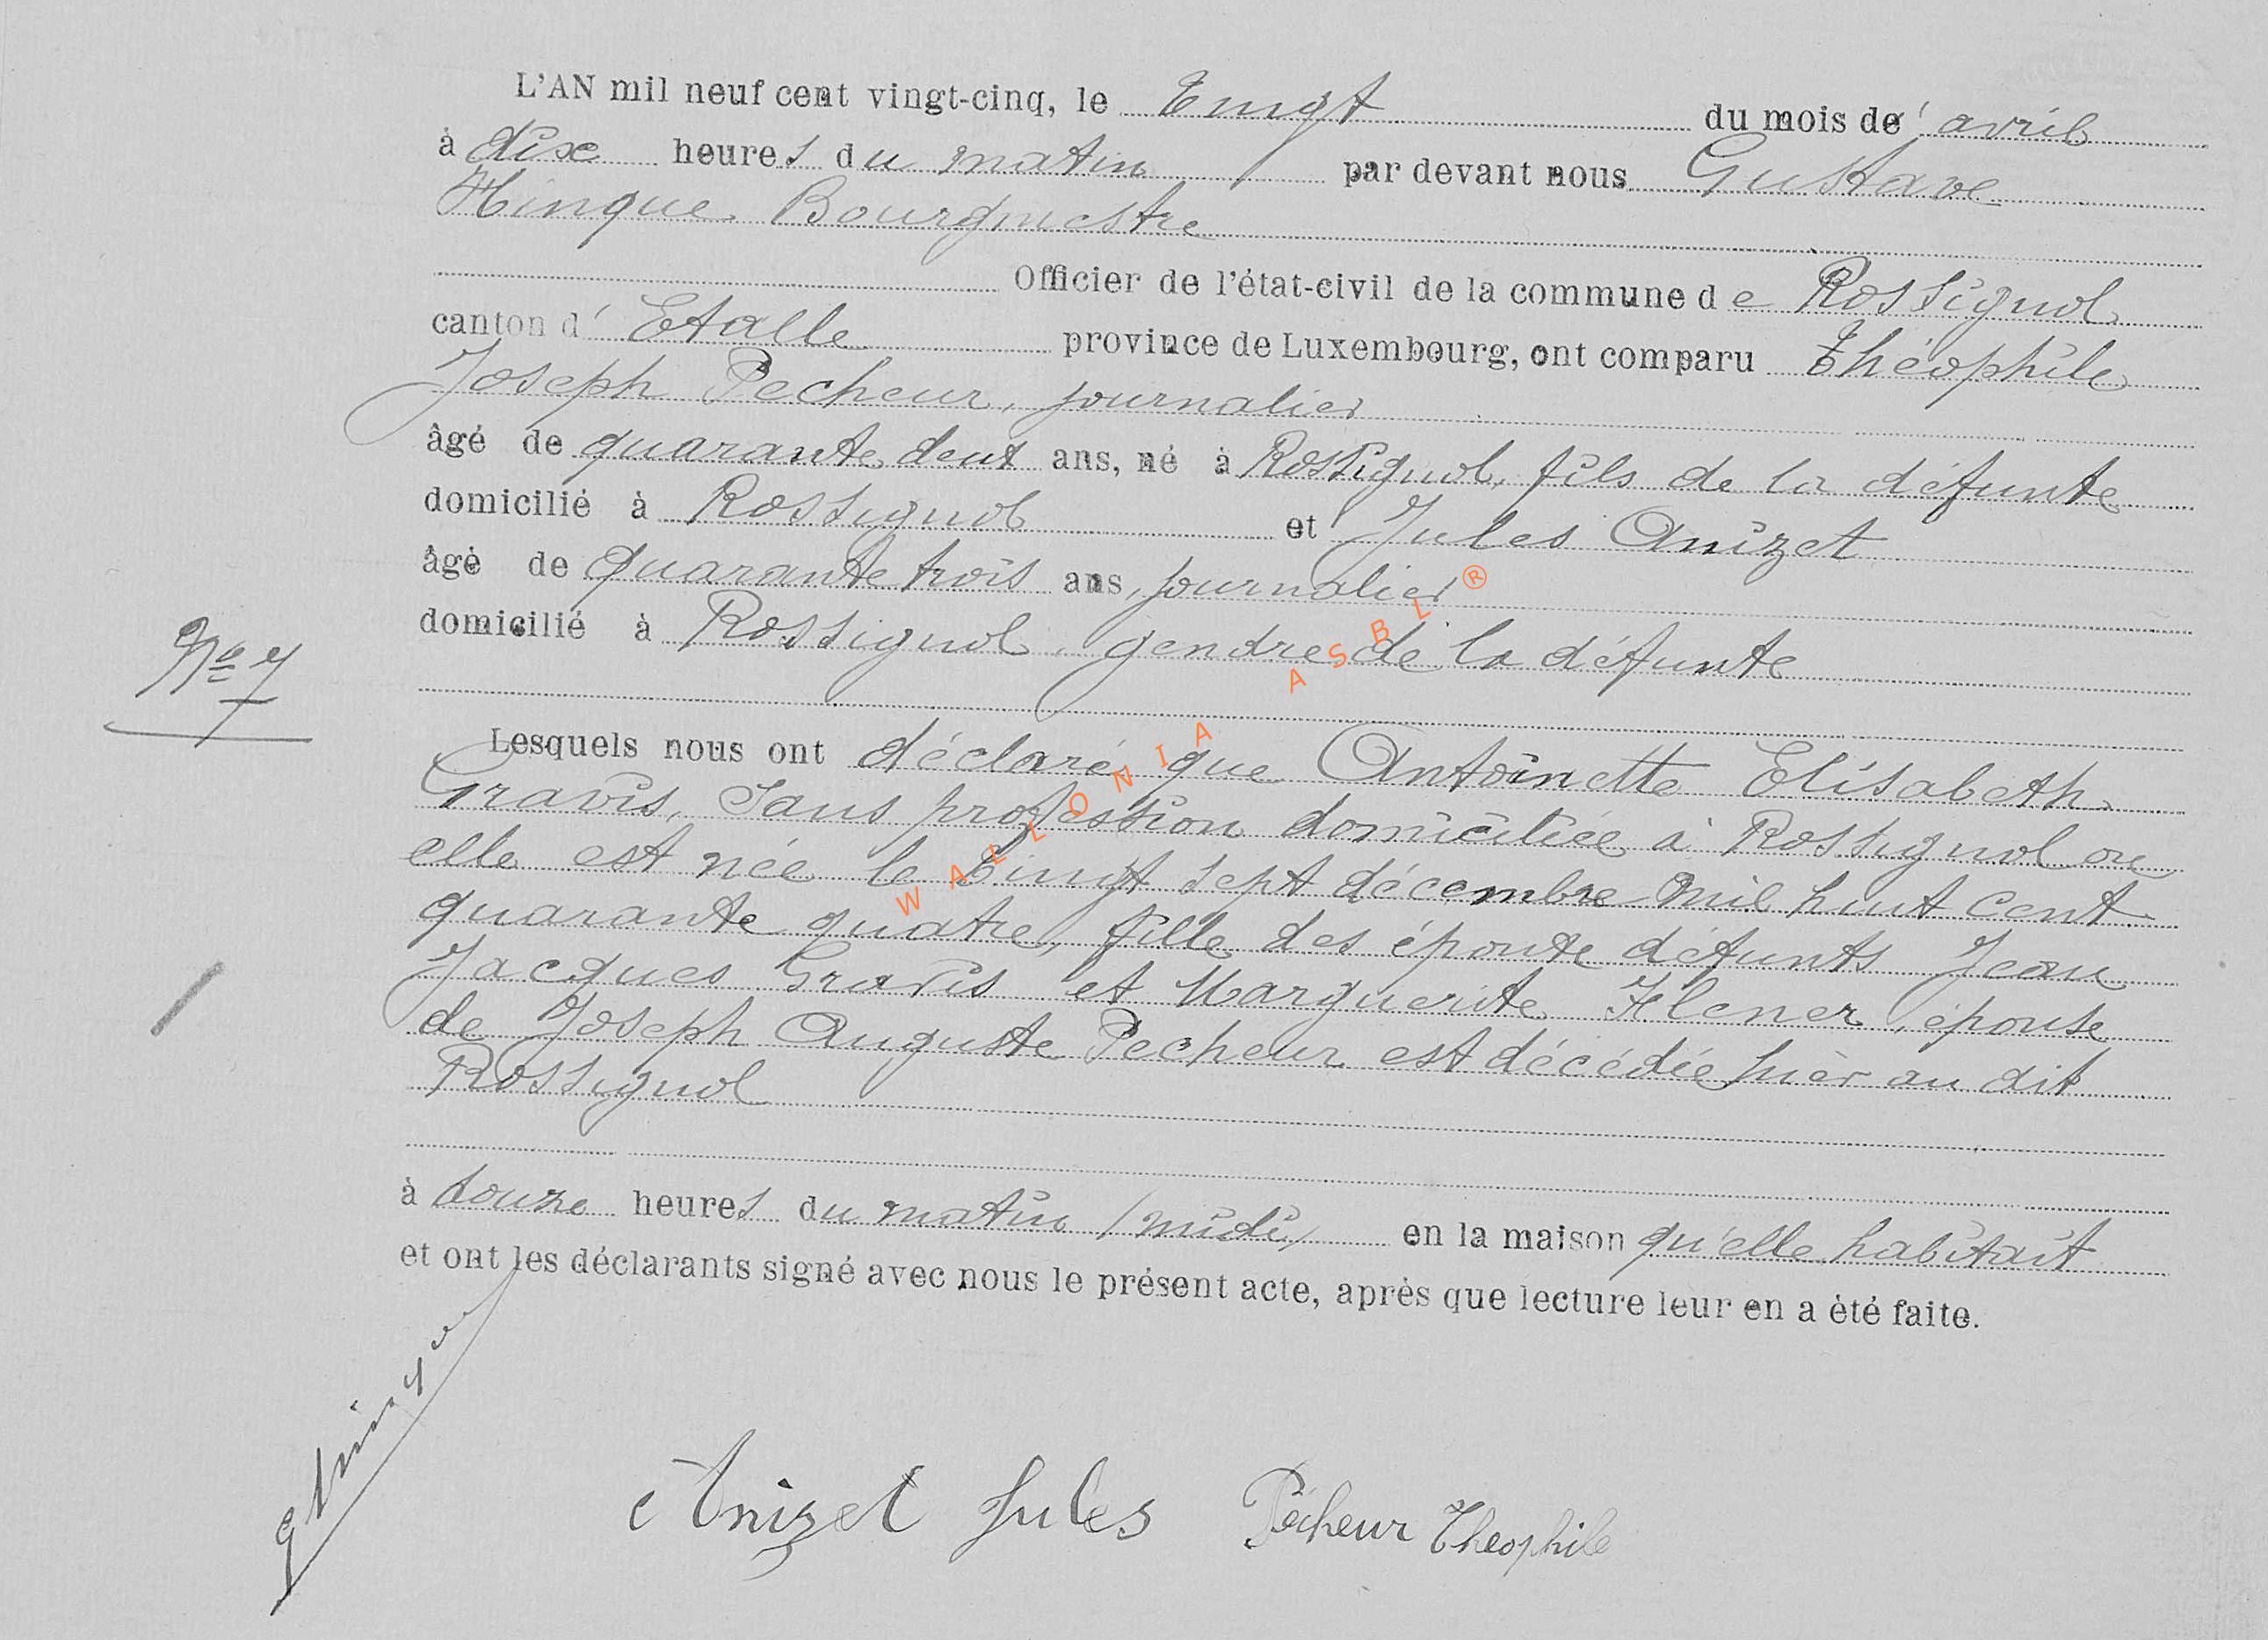 L'AN mil neuf cent vingt-cinq, le vingt du mois de' avril
à dix heures du matin par devant nous Gustave
Hinque Bourgmestre
Officier de l'état-civil de la commune de Rossignol
canton d' Etalle province de Luxembourg, ont comparu Théophile
Joseph Pecheur, journalier
âgé de quarante deux ans, né à Rossignol, fils de la défunte
domicilié à Rossignol et Jules Anizet
âgé de quarante trois ans, journalier
domicilié à Rossignol, gendre de la défunte
N° 7
Lesquels nous ont déclaré que Antoinette Elisabeth
Gravis, sans profession domiciliée à Rossignol où
elle est née le vingt sept décembre mil huit cent
quarante quatre, fille des époux défunts Jean
Jacques Gravis et Marguerite, épouse
de Joseph Auguste Pecheur est décédée hier au dit
Rossignol
à douze heures du matin (midi) en la maison qu'elle habitait
et ont les déclarants signé avec nous le présent acte, après que lecture leur en a été faite.
Anizet Jules Pêcheur Théophile
WALLONIA ASBL ®